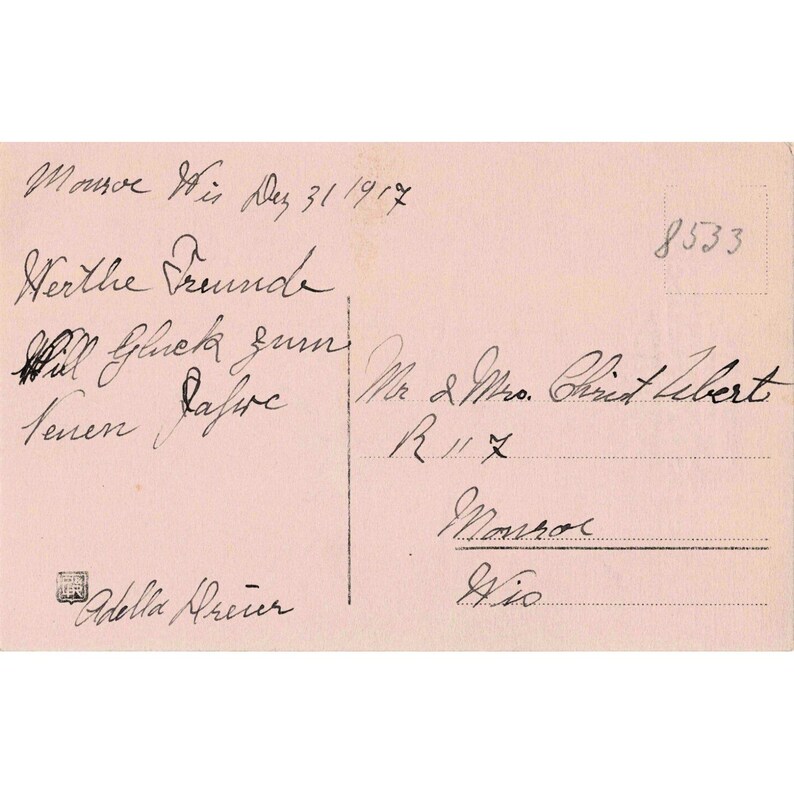 Monroe Wis Dez 31 1917
Werthe Freunde
Will Gluck zum
Neuen Jahre
Adella Dreier
8533
Mr & Mrs. Christ Zebert
R 11 7
Monroe
Wis